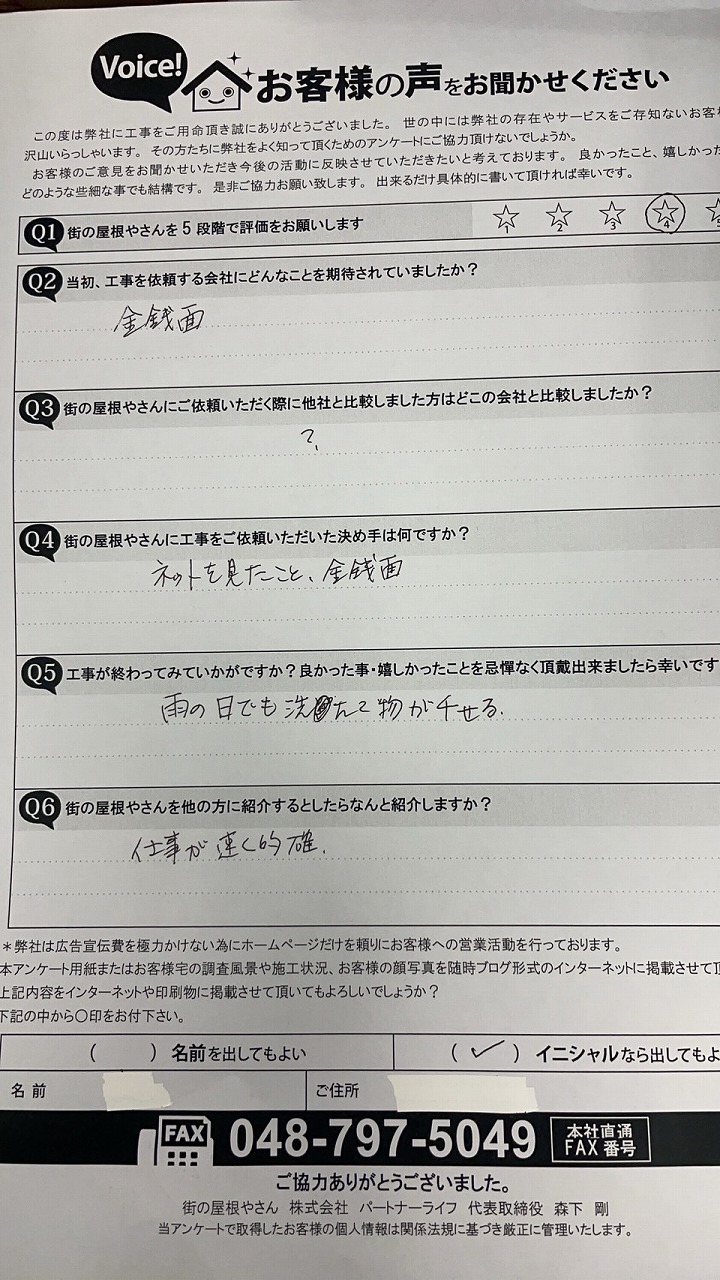 Voice! お客様の声をお聞かせください
この度は弊社に工事をご用命頂き誠にありがとうございました。 世の中には弊社の存在やサービスをご存知ないお客様
沢山いらっしゃいます。 その方たちに弊社をよく知って頂くためのアンケートにご協力頂けないでしょうか。
お客様のご意見をお聞かせいただき今後の活動に反映させていただきたいと考えております。 良かったこと、嬉しかった
どのような些細な事でも結構です。 是非ご協力お願い致します。 出来るだけ具体的に書いて頂ければ幸いです。
Q1 街の屋根やさんを5段階で評価をお願いします 1 2 3 4 5
Q2 当初、工事を依頼する会社にどんなことを期待されていましたか？
金銭面
Q3 街の屋根やさんにご依頼いただく際に他社と比較しました方はどこの会社と比較しましたか？
？
Q4 街の屋根やさんに工事をご依頼いただいた決め手は何ですか？
ネットを見たこと、金銭面
Q5 工事が終わってみていかがですか？良かった事・嬉しかったことを忌憚なく頂戴出来ましたら幸いです
雨の日でも洗たく物が干せる.
Q6 街の屋根やさんを他の方に紹介するとしたらなんと紹介しますか？
仕事が速く的確.
＊弊社は広告宣伝費を極力かけない為にホームページだけを頼りにお客様への営業活動を行っております。
本アンケート用紙またはお客様宅の調査風景や施工状況、お客様の顔写真を随時ブログ形式のインターネットに掲載させて頂
上記内容をインターネットや印刷物に掲載させて頂いてもよろしいでしょうか？
下記の中から〇印をお付下さい。
（　　）名前を出してもよい （✓）イニシャルなら出してもよ
名前 ご住所
FAX 048-797-5049 本社直通 FAX番号
ご協力ありがとうございました。
街の屋根やさん 株式会社 パートナーライフ 代表取締役 森下 剛
当アンケートで取得したお客様の個人情報は関係法規に基づき厳正に管理いたします。